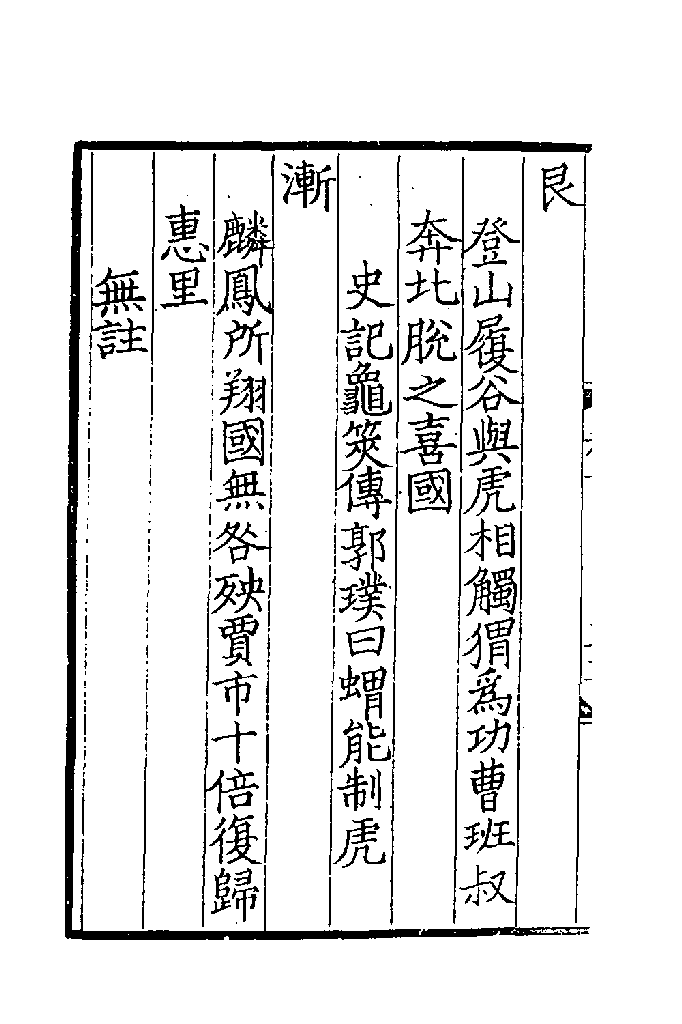 艮
登山履谷與虎相觸猬爲功曹班叔
奔北脫之喜國
史記龜筴傳郭璞曰蝟能制虎
漸
麟鳳所翔國無咎殃賈市十倍復歸
惠里
無註